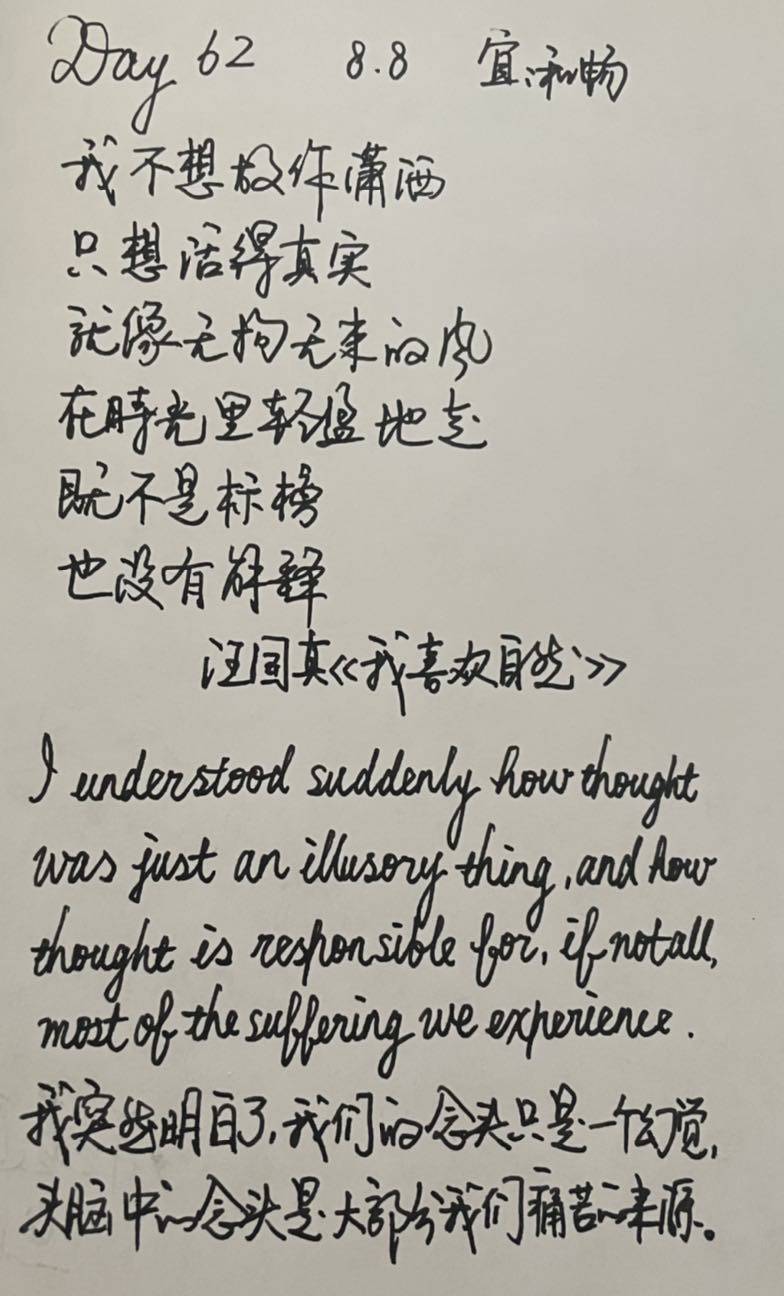 Day 62 8.8 宜:和畅
我不想故作潇洒
只想活得真实
就像无拘无束的风
在時光里轻盈地走
既不是标榜
也没有解释
汪国真《我喜欢自然》
I understood suddenly how thought
was just an illusory thing, and how
thought is responsible for, if not all,
most of the suffering we experience.
我突然明白了,我们的念头只是一个幻觉,
头脑中的念头是大部分我们痛苦的来源。